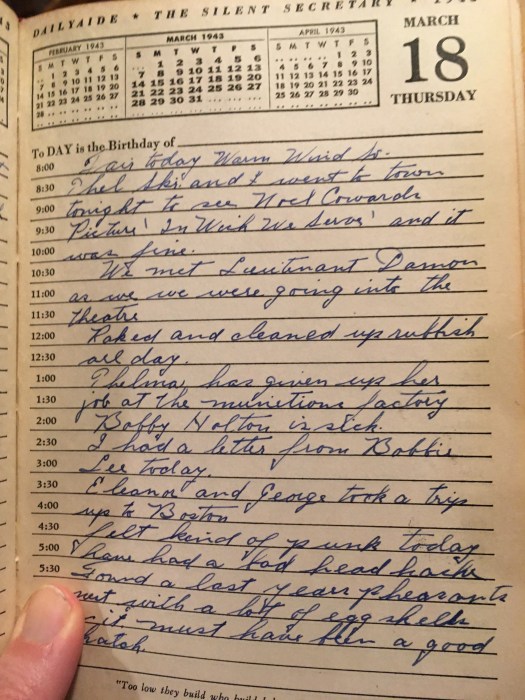 DAILYAIDE * THE SILENT SECRETARY * 19
FEBRUARY 1943
S M T W T F S
1 2 3 4 5 6
7 8 9 10 11 12 13
14 15 16 17 18 19 20
21 22 23 24 25 26 27
28
MARCH 1943
S M T W T F S
1 2 3 4 5 6
7 8 9 10 11 12 13
14 15 16 17 18 19 20
21 22 23 24 25 26 27
28 29 30 31
APRIL 1943
S M T W T F S
1 2 3
4 5 6 7 8 9 10
11 12 13 14 15 16 17
18 19 20 21 22 23 24
25 26 27 28 29 30
MARCH
18
THURSDAY
To DAY is the Birthday of
8:00 Fair today Warm Wind So.
8:30 Thel Ski and I went to town
9:00 tonight to see Noel Cowards
9:30 Picture 'In Wich We Serve' and it
10:00 was fine.
10:30 We met Lieutinant Damon
11:00 as we we were going into the
11:30 theatre
12:00 Raked and cleaned up rubbish
12:30 all day.
1:00 Thelma has given up her
1:30 job at the munitions factory
2:00 Bobby Holton is sick.
2:30 I had a letter from Bobbie
3:00 Lee today.
3:30 Eleanor and George took a trip
4:00 up to Boston
4:30 felt kind of punk today
5:00 have had a bad head hache
5:30 Found a last years pheasants
nest with a lot of egg shells
it must have been a good
hatch.
"Too low they build who build